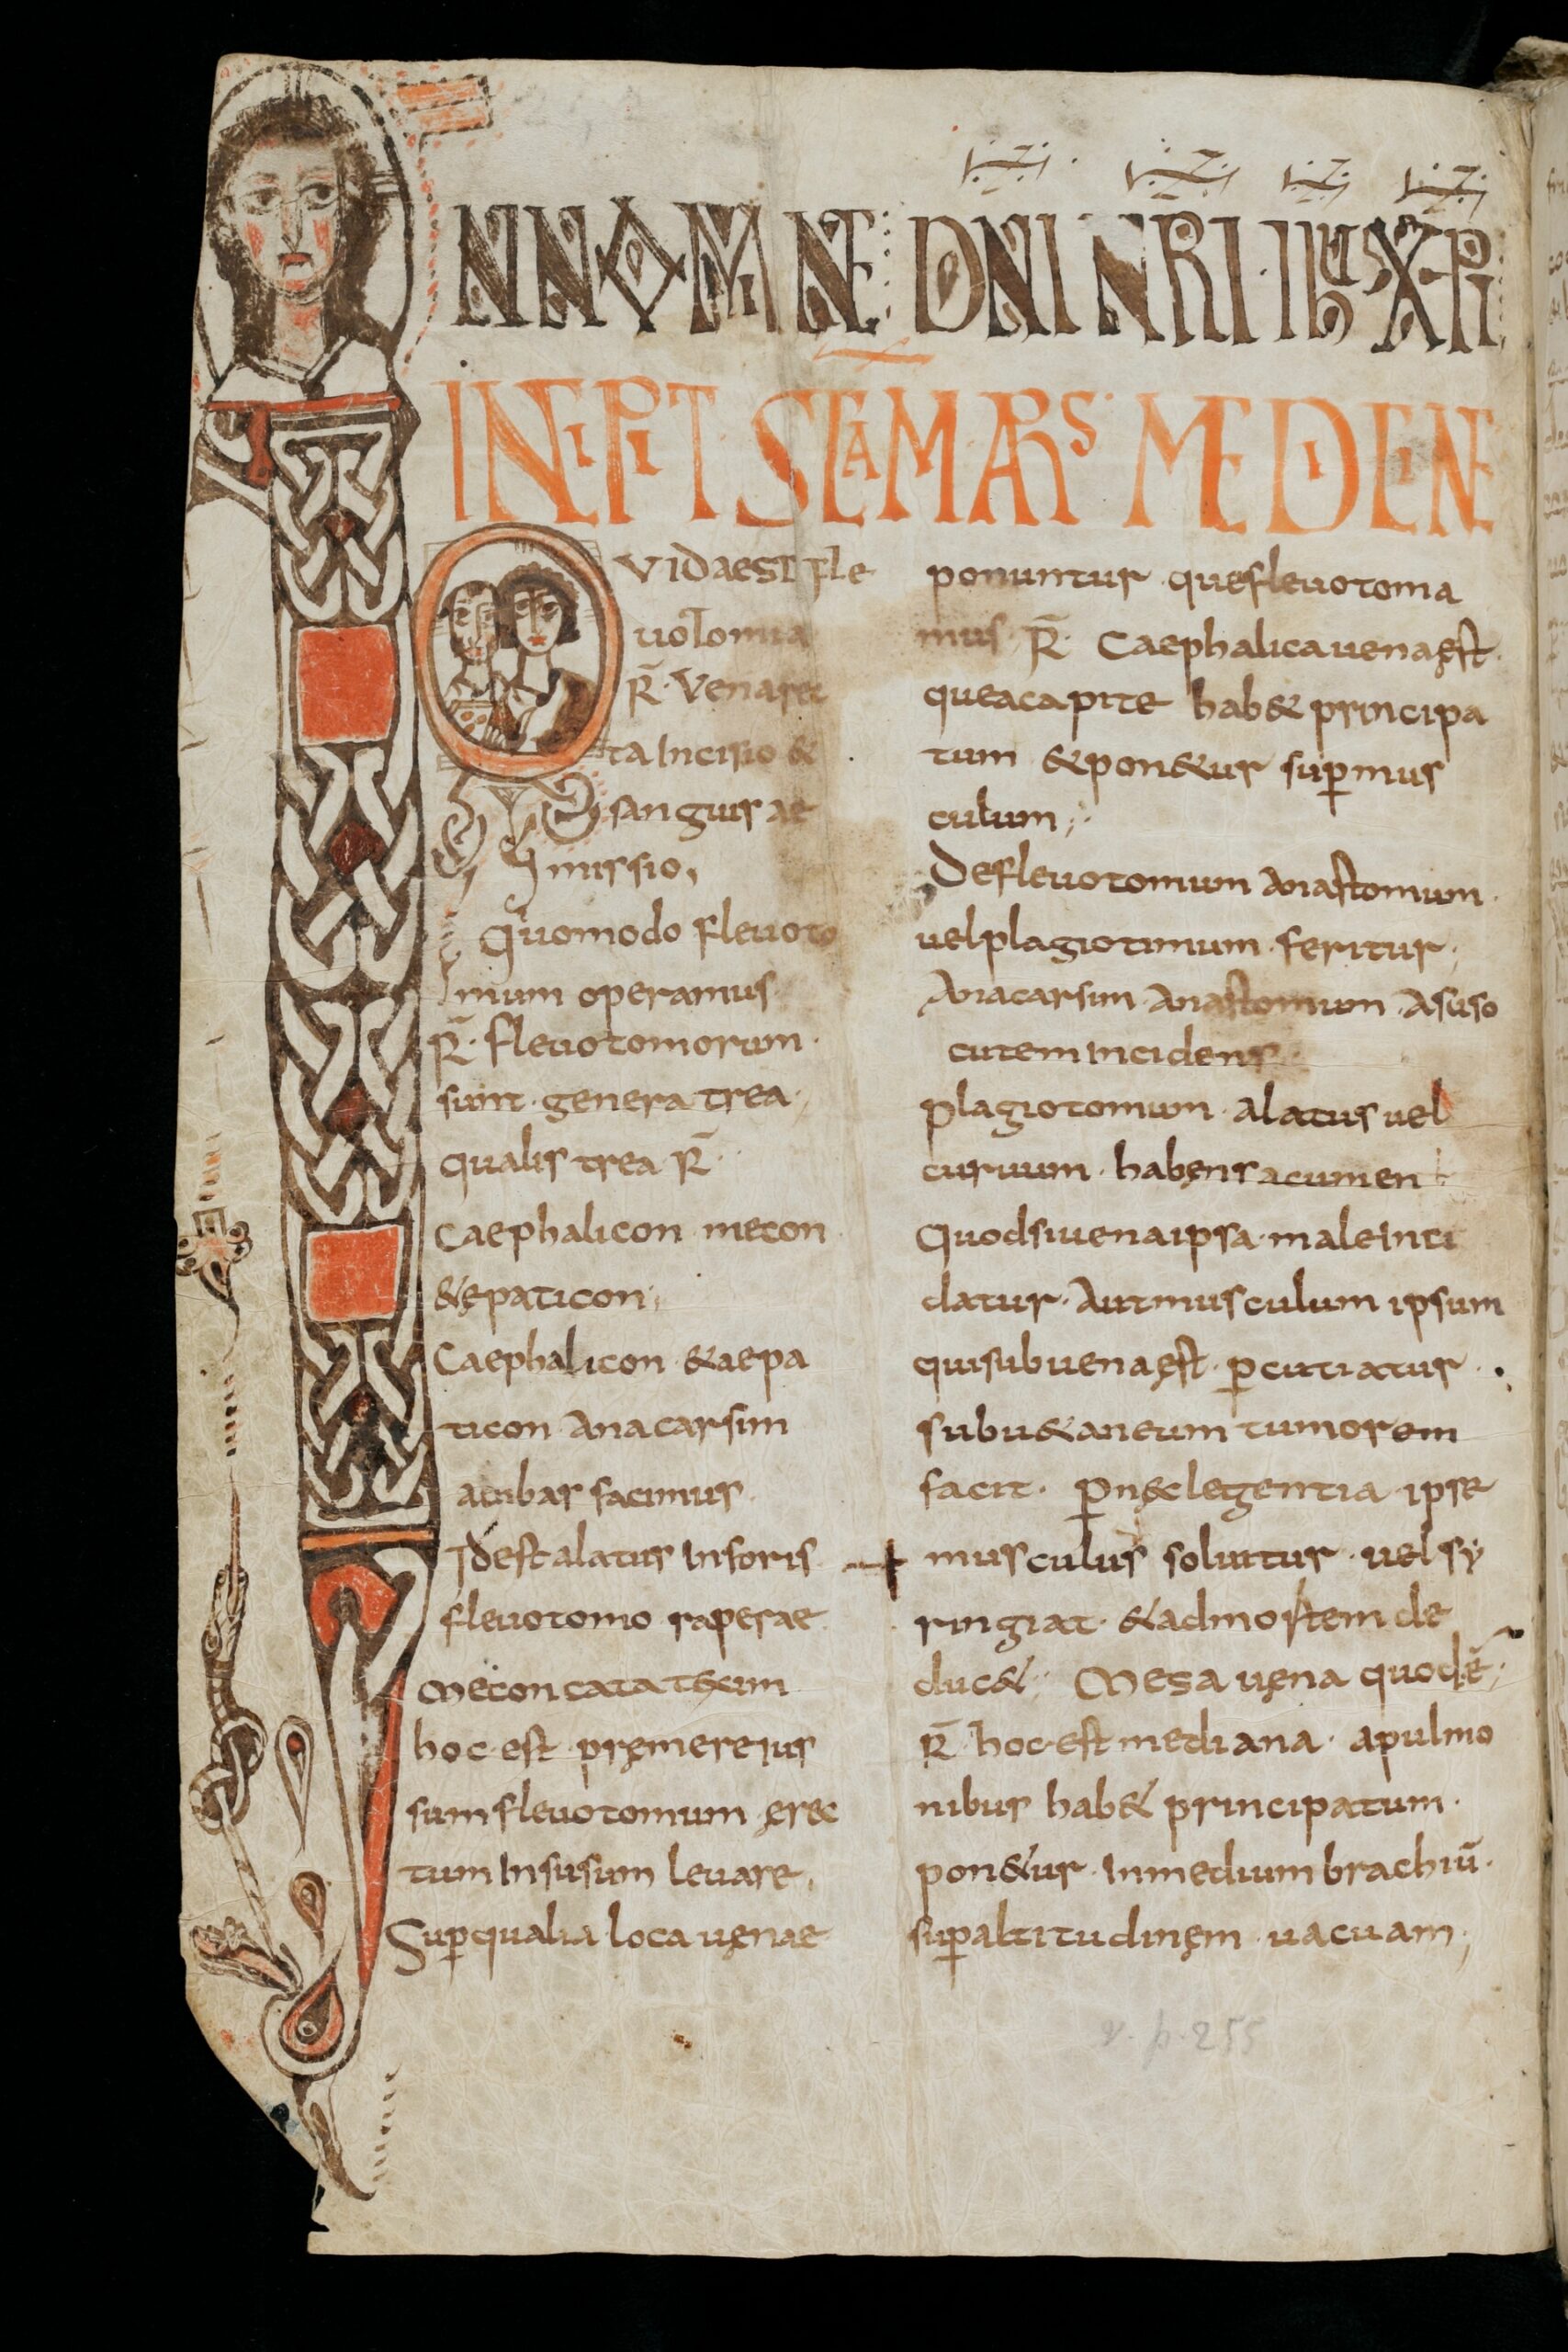 IN NOMINE DNI NRI IHUS XPI
INCIPIT SCAM ARS MEDICINE
Quid aest fle
uotomia
R̄. Vena rec
ta incisio &
sanguis ae
missio,
Quomodo flevoto
mum operamus
R̄. fleuotomorum.
sunt. genera trea.
qualis trea R̄.
Caephalicon mecon
& ępaticon;
Caephalicon & aepa
ticon anacarsim
acubas facimus.
Idest alatus insoris
fleuotomo raperae
mecon cata
hoc est pręmere ius
sum fleuotomum ęrec
tum insusum leuare,
Sup̄ qualia loca uęnae
ponuntur que fleuotoma
mus. R̄. Caephalica uena ęst.
que a capite hab& principa
tum & pon&ur sup̄ mus
culum;
De fleuotomum anastomum.
uel plagiotimum. feritur;
Anacarsim anastomum asuso
cutem incidens.
plagiotomum. alatus uel
curuum. habęns acumen
Quod si uena ipsa. male inci
datur. Aut musculum ipsum
qui sub uena ęst. p̄cutiatur.
subu&aneum tumorem
facit. p̄ neclegentia ipse
musculus soluitur. uel sy
ringiat. & ad mortem de
duc&; Mesa uęna quod ē;
R̄ hoc est mediana. a pulmo
nibus hab& principatum.
pon&ur. in medium brachiū.
sup̄ altitudinęm uacuam;
v. p. 255